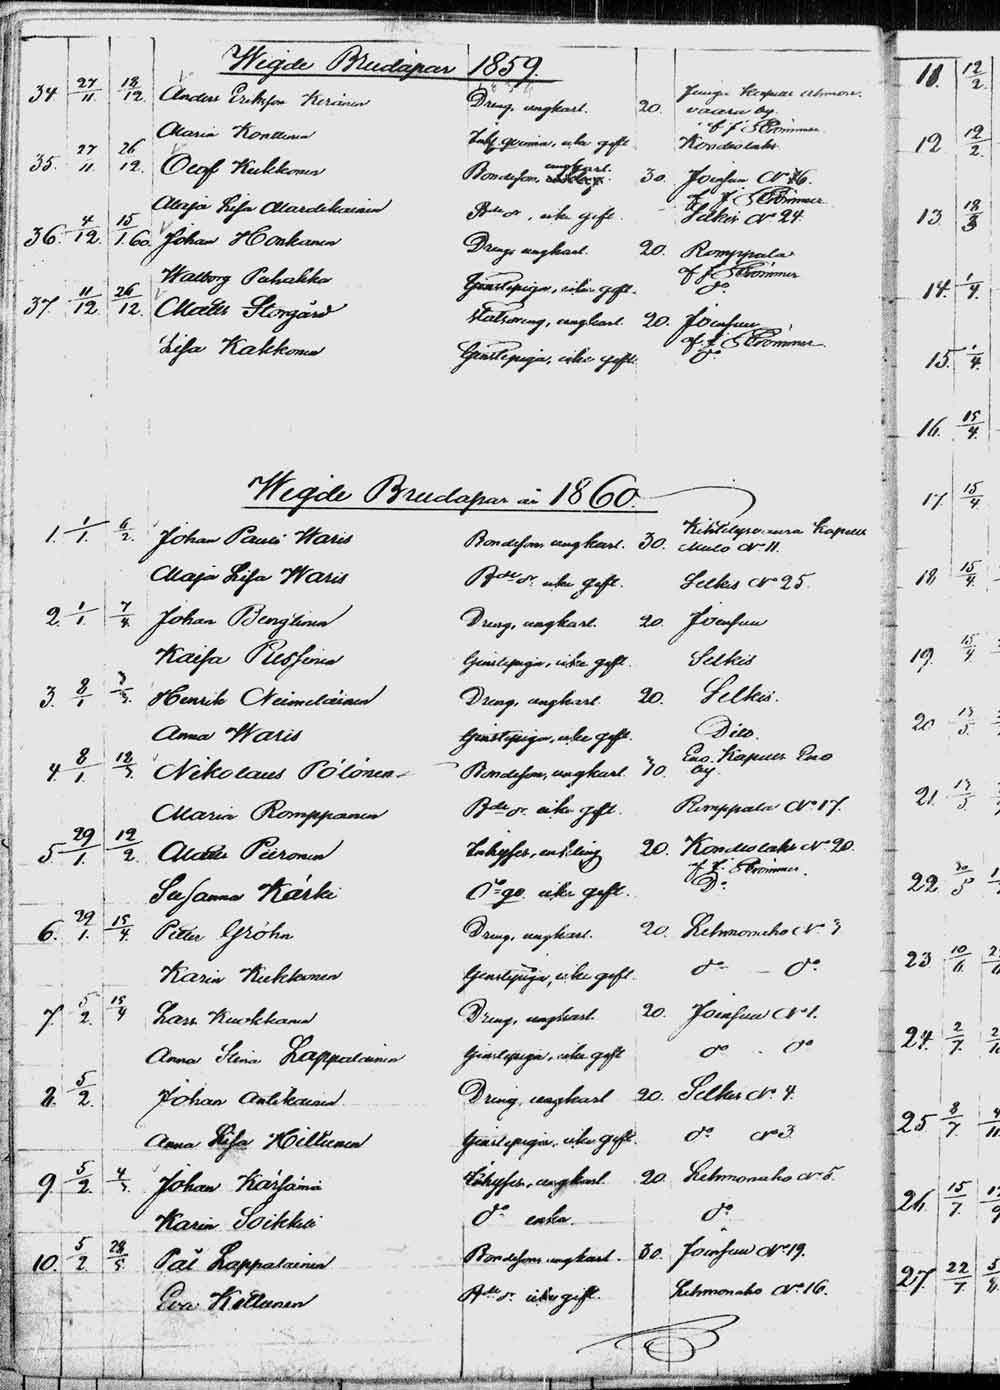 Wigde Brudapar 1859.
34. 27/11 18/12. Anders Eriksson Keränen Dreng, ungkarl. 20. vaara by
Maria Konttinen ogift. Kondiolaks
35. 27/11 26/12. Olof Kukkonen Bondeson, ungkarl. 30. Joensuu No 16.
Maja Lisa Mardikainen Bde dr, icke gift. Selkis No 24.
36. 4/12. 15/1.60. Johan Honkanen Dreng, ungkarl. 20. Romppala
Walborg Pahakka Gienstepiga, icke gift. do
37. 11/12. 26/12. Matts Storgård Statsdreng, ungkarl. 20. Joensuu
Lisa Kakkonen Gienstepiga, icke gift. do
Wigde Brudapar år 1860.
1. 1/1. 6/2. Johan Pauli Waris Bondeson, ungkarl. 30. Kihtelysvaara Kapell Mulo No 11.
Maja Lisa Waris Bde dr. icke gift. Selkis No 25.
2. 1/1. 7/4. Johan Bengtinen Dreng, ungkarl. 20. Joensuu
Kaisa Pessinen Gienstepiga, icke gift. Selkis
3. 8/1 Henrik Neimeläinen Dreng, ungkarl. 20. Selkis.
Anna Waris Gienstepiga, icke gift. Dito.
4. 8/1. 18/3. Nikolaus Pölönen Bondeson, ungkarl. Eno Kapell Eno by.
Maria Romppanen Bde dr. icke gift. Romppala No 17.
5. 29/1. 12/2. Matts Piironen Inhyses, enkling 20. Kondiolaks No 20.
Susanna Kärki do icke gift. Do.
6. 29/1. 15/4. Petter Gröhn Dreng, ungkarl. 20. Lehmonaho No
Karin Kukkonen Gienstepiga, icke gift. do do
7. 5/2. 15/4 Lars Kuokkanen Dreng, ungkarl. 20. Joensuu No 1.
Anna Stina Lappalainen Gienstepiga, icke gift do do
8. 5/2. Johan Antikainen Dreng, ungkarl 20. Selkis No 4.
Anna Lisa Hiltunen Gienstepiga, icke gift. do No 3.
9. 5/2. 4/3. Johan Kärsämä Inhyses, ungkarl 20. Lehmonaho No 5.
Karin Soikkeli do enka. do
10. 5/2. 28/5. Pål Lappalainen Bondeson, ungkarl. 30. Joensuu No 19.
Eva Kettunen Bde dr. icke gift. Lehmonaho No 16.
11. 12/2.
12 12/2.
13. 18/3
14. 1/4.
15. 1/4.
16. 15/4.
17. 15/4.
18 15/4.
19. 15/4
20
21.
22
23 10/6.
24. 2/7.
25 8/7.
26. 15/7.
27 22/7.